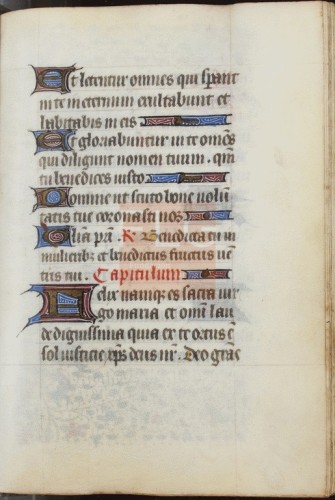 Et letentur omnes qui sperant
in te in eternum exultabunt et
habitabis in eis
Et gloriabuntur in te omes
qui diligunt nomen tuum . qm
tu benedices iusto
Domine ut scuto bone volun
tatis tue coronasti nos
Glia pri . R Benedicta tu in
mulieribz et benedictus fructus ue
tris tui . Capitulum
Felix namqz es sacra uir
go maria et omi lau
de dignissima quia ex te ortus e
sol iusticie xps deus nr . Deo gras